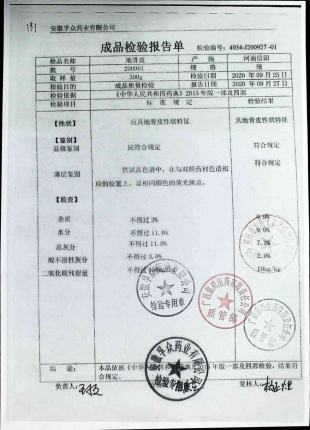 131
安徽孚众药业有限公司
成品检验报告单 检验编号：4034-J200927-01
检品名称 地骨皮 产地 河南信阳
批号 200901 规格 统
取样量 300g 检验日期 2020年09月25日
检验目的 成品质量检验 报告日期 2020年09月27日
检验依据 《中华人民共和国药典》2015年版一部及四部
检验项目 标准规定 检验结果
【性状】 应具地骨皮性状特征 具地骨皮性状特征
【鉴别】
显微鉴别 应符合规定 符合规定
符合规定
薄层鉴别 供试品色谱中，在与对照药材色谱相
应的位置上，显相同颜色的荧光斑点。
【检查】
杂质 不得过3%
水分 不得过11.0% 9.0%
总灰分 不得过11.0% 7.3%
酸不溶性灰分 不得过3.0% 2.0%
二氧化硫残留量 10mg/kg
安徽孚众药业有限公司
检验专用章
质管部
安徽孚众药业有限公司
检验专用章
结论： 本品依据《中华人民共和国药典》2015年版一部及四部检验，结果符
合规定。
负责人： 复核人：